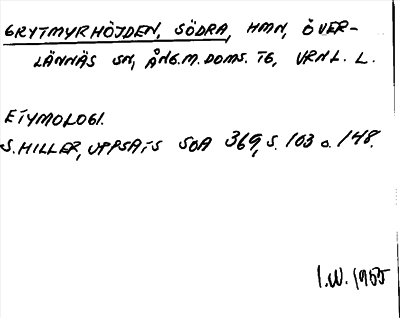 GRYTMYRHÖJDEN, SÖDRA, HMN, ÖVER-
LÄNNÄS SN, ÅNG.M.DOMS.TG, VRNL. L.
ETYMOLOGI.
S.HILLER, UPPSATS SOA 369, S. 103 o. 148.
I.W. 1965